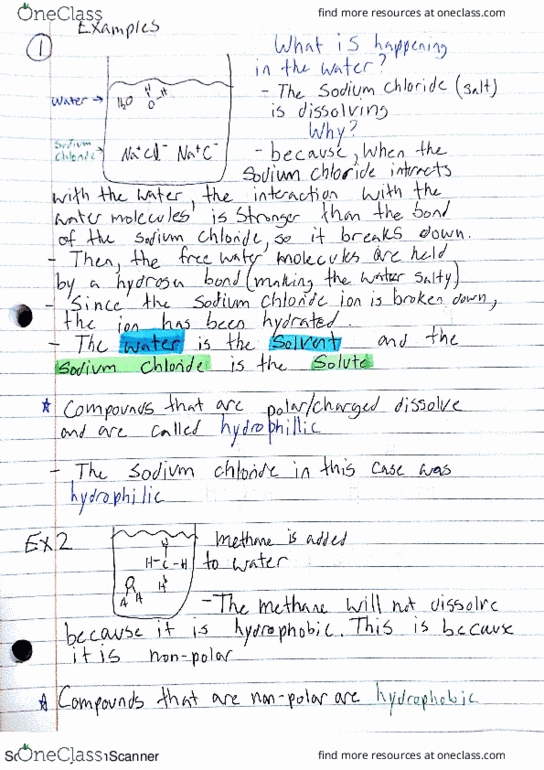 OneClass
find more resources at oneclass.com
Examples
1
What is happening
in the water?
Water →
H₂O
H
O-H
- The sodium chloride (salt)
is dissolving
Why?
Sodium
chloride →
Na⁺Cl⁻ Na⁺C⁻
- because, when the
Sodium chloride interacts
with the water, the interaction with the
water molecules is stronger than the bond
of the sodium chloride, so it breaks down.
- Then, the free water molecules are held
by a hydrogen bond (making the water salty)
- Since the sodium chloride ion is broken down,
the ion has been hydrated.
- The water is the Solvent and the
Sodium chloride is the Solute
☆ Compounds that are polar/charged dissolve
and are called hydrophillic
- The sodium chloride in this case was
hydrophilic
Ex 2
methane is added
to water
H
H-C-H
H
- The methane will not dissolve
because it is hydrophobic. This is because
it is non-polar
☆ Compounds that are non-polar are hydrophobic
OneClass
Scanner
find more resources at oneclass.com